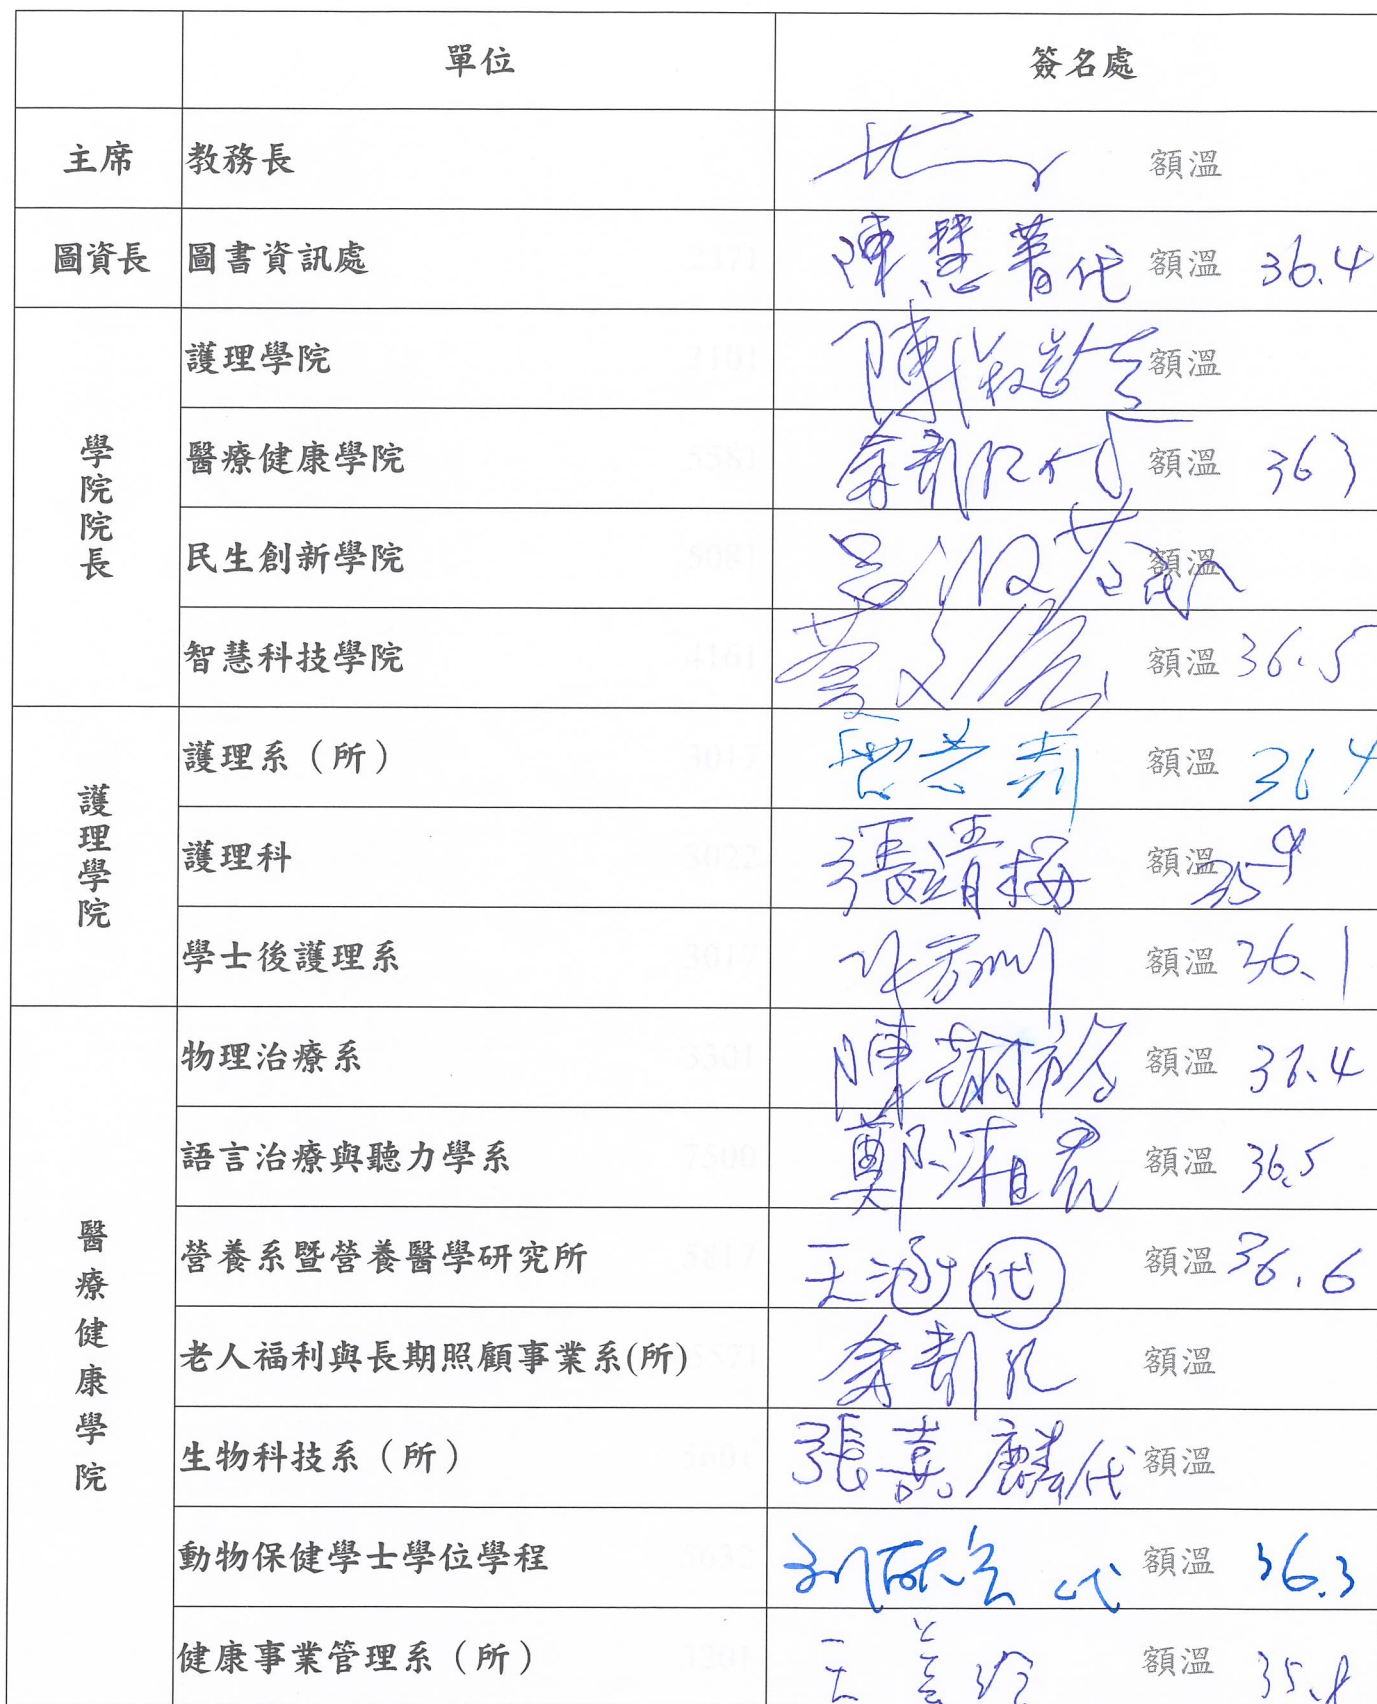 單位 簽名處
主席 教務長 額溫
圖資長 圖書資訊處 陳慧菁代 額溫 36.4
學院院長
護理學院 陳 額溫
醫療健康學院 代 額溫 363
民生創新學院 額溫
智慧科技學院 蔡文 額溫 36.5
護理學院
護理系（所） 額溫 364
護理科 張靖梅 額溫 359
學士後護理系 額溫 36.1
醫療健康學院
物理治療系 陳 額溫 36.4
語言治療與聽力學系 鄭湘君 額溫 36.5
營養系暨營養醫學研究所 王涵代 額溫 36.6
老人福利與長期照顧事業系(所) 額溫
生物科技系（所） 張嘉麟代 額溫
動物保健學士學位學程 代 額溫 36.3
健康事業管理系（所） 王 額溫 35.8